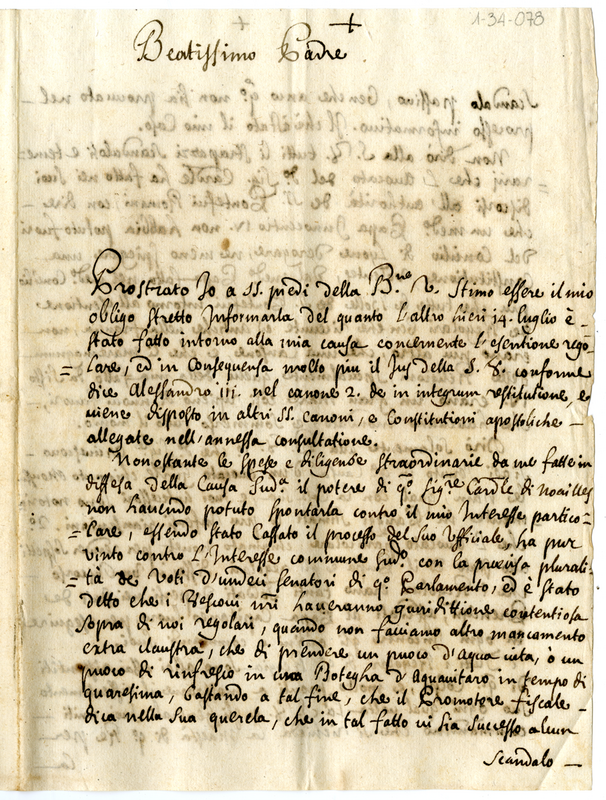 1-34-078
Beatissimo Padre
Prostrato Jo a SS. piedi della B.ne V. Stimo essere il mio
obligo stretto Informarla del quanto l'altro hieri 14. luglio è
stato fatto intorno alla mia causa concernente l'esentione rego-
= lare, ed in Consequensa molto piu il Jus della S. S. conforme
dice Alessandro iii. nel canone 2. de in integrum restitutione, e
viene disposto in altri SS. canoni, e Constitutioni apostoliche -
allegate nell'annessa consultatione.
Nonostante le Spese e diligense straordinarie da me fatte in
diffesa della Causa Sud.a il potere di q.o Sig.re Card.le di noailles
non havendo potuto Spontarla contro il mio Interesse partico-
= lare, essendo stato Cassato il processo del Suo Ufficiale, ha pur
vinto contro l'Interesse commune Sud.o con la precisa plurali-
= tà de Voti d'undeci Senatori di q.o Parlamento, ed è stato
detto che i Vescovi nri haveranno giuridittione contentiosa
sopra di noi regolari, quando non facciamo altro mancamento
extra claustra, che di prendere un puoco d'Aqua vita, ò un
puoco di rinfresco in una Botegha d'Aquavitaro in tempo di
quaresima, bastando a tal fine, che il Promotore fiscale -
dica nella Sua querela, che in tal fatto vi sia Successo alcun
scandalo -